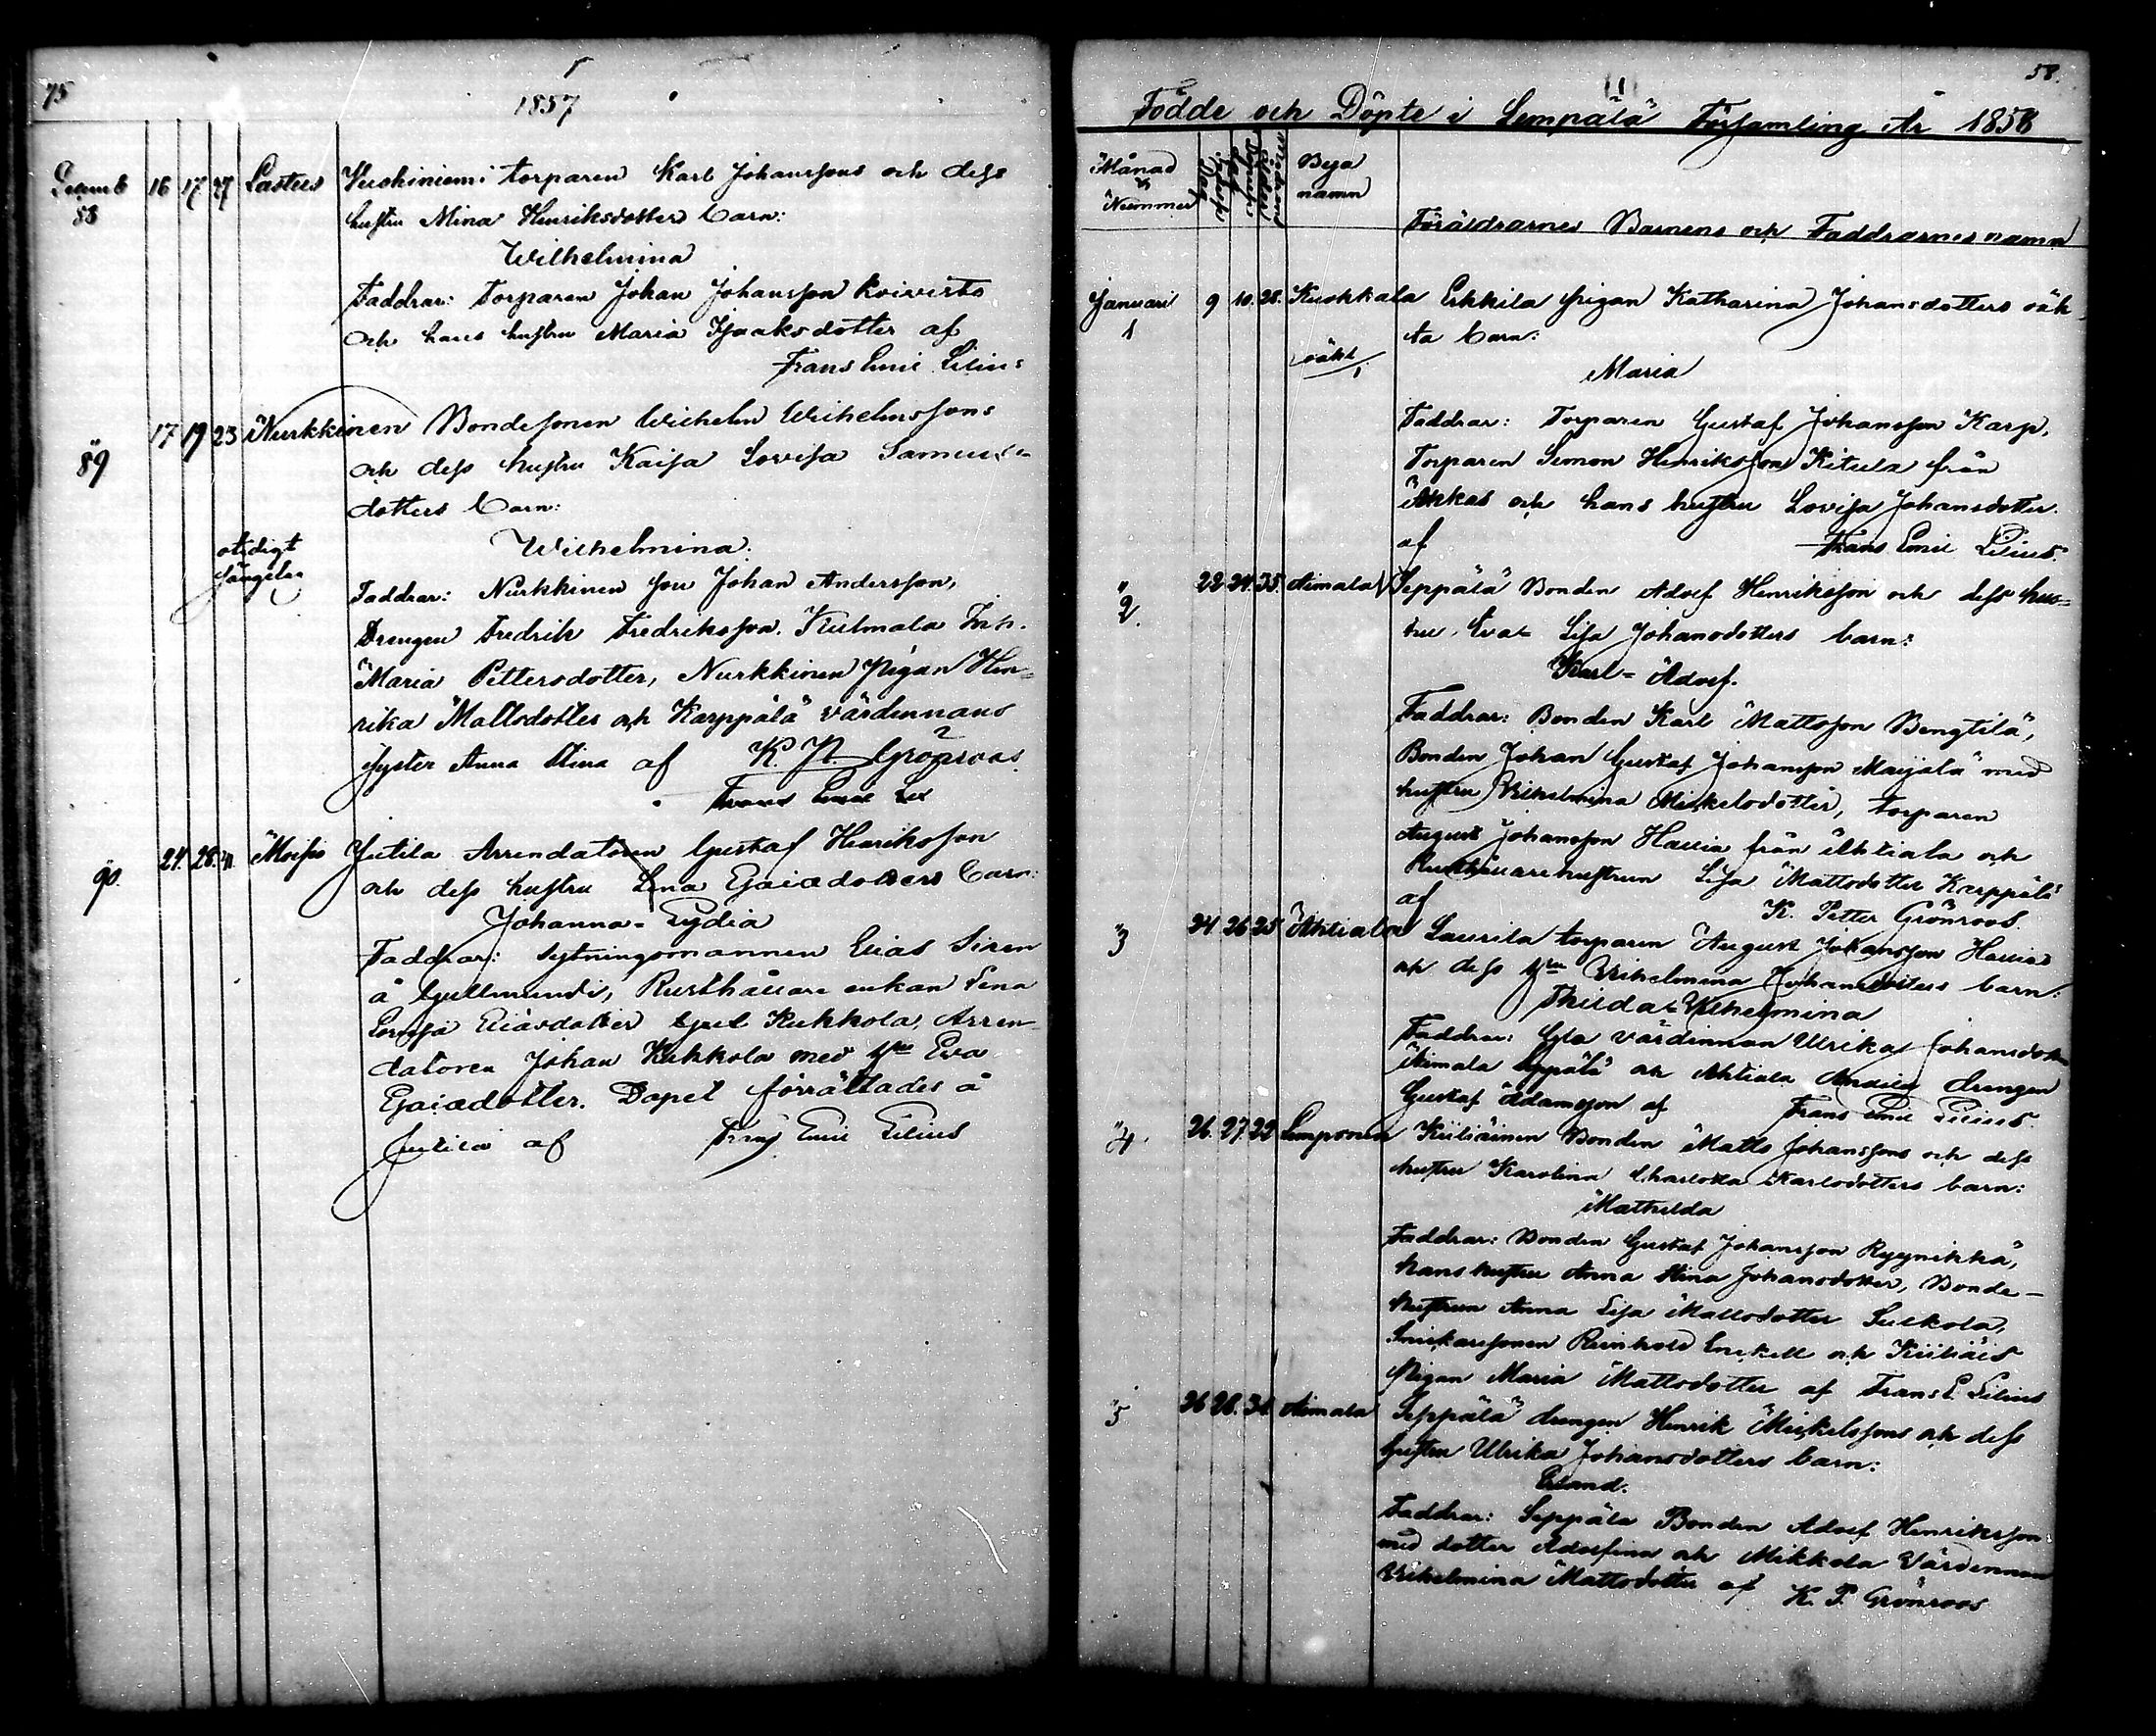 75
1857
Decemb 88 16 17 27 Lasteus Kuokiniemi torparen Karl Johanssons och dess
hustru Mina Henriksdotter barn:
Wilhelmina
Faddrar: Torparen Johan Johansson Koivisto
och hans hustru Maria Isaaksdotter af
Frans Emil Lilius
89 17 19 23 Nurkkinen Bondesonen Wilhelm Wilhelmssons
och dess hustru Kaisa Lovisa Samuels
dotters barn:
otidigt Wilhelmina.
sängelag
Faddrar: Nurkkinen son Johan Andersson,
Drengen Fredrik Fredriksson, Kulmala Inh.
Maria Pettersdotter, Nurkkinen Pigan Hen-
rika Mattsdotter och Karppälä värdinnans
syster Anna Stina af K. P. Grönroos
Frans Emil
90. 24. 28. Moisio Jutila Arrendatoren Gustaf Henriksson
och dess hustru Lena Esaiædotters barn:
Johanna-Lydia
Faddrar: Sytningsmannen Elias Siren
å Gullmundi, Rusthållare enkan Lena
Lovisa Eliasdotter Kukkola, Arren-
datoren Johan Kukkola med Hu Eva
Esaiædotter. Dopet förrättades å
Jutila af Frans Emil Lilius
58.
Födde och Döpte i Lempälä Församling År 1858
Månad och Nummer Bya namn
Föräldrarnes Barnens och Faddrarnes namn
Januari 1 9 10. 28. Kuokkala Erkkila pigan Katharina Johansdotters oäk-
ta barn:
oäkt Maria
Faddrar: Torparen Gustaf Johansson Karp,
Torparen Simon Henriksson Kitula från
Akkas och hans hustru Lovisa Johansdotter.
af Frans Emil Lilius.
2. 22. 24. 35. Aimala Seppälä Bonden Adolf Henriksson och dess hus-
tru Eva Lisa Johansdotters barn:
Karl-Adolf.
Faddrar: Bonden Karl Mattsson Bengtilä,
Bonden Johan Gustaf Johansson Maijala med
hustru Wilhelmina Mickelsdotter, torparen
August Johansson Hauia från Ahtiala och
Rusthållarehustrun Lisa Mattsdotter Karppälä
af K. Petter Grönroos.
3 24 26 25 Ahtiala Laurila torparen August Johansson Hauias
och dess Hu Wilhelmina Johansdotters barn:
Thilda-Wilhelmina
Faddrar: Gla värdinnan Ulrika Johansdotter
Aimala Seppälä och Ahtiala Anttila drengen
Gustaf Adamsson af Frans Emil Lilius
4. 26. 27. 22 Lempoinen Kiiliäinen Bonden Matts Johanssons och dess
hustru Karolina Charlotta Karlsdotters barn:
Mathilda
Faddrar: Bonden Gustaf Johansson Ryynikkä,
hans hustru Anna Stina Johansdotter, Bonde-
hustrun Anna Lisa Mattsdotter Sulkola,
Snickaresonen Reinhold Enckell och Kiiliäis
Pigan Maria Mattsdotter af Frans E Lilius
5 26 28. 31 Aimala Seppälä drengen Henrik Mickelssons och dess
hustru Ulrika Johansdotters barn:
Erland.
Faddrar: Seppälä Bonden Adolf Henriksson
med dotter Adolfina och Mikkola Värdinnan
Wilhelmina Mattsdotter af K. P. Grönroos